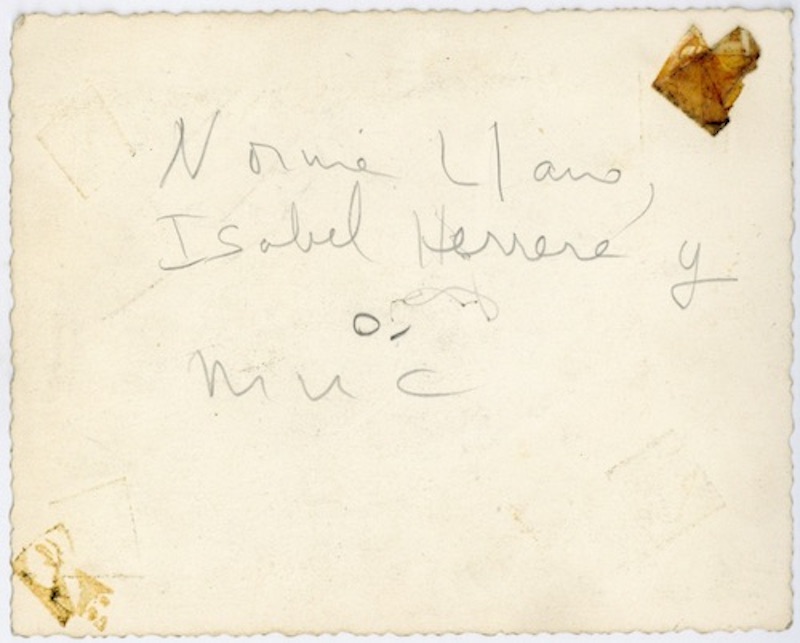 Norma Llano,
Isabel Herrera y
o.
MUC